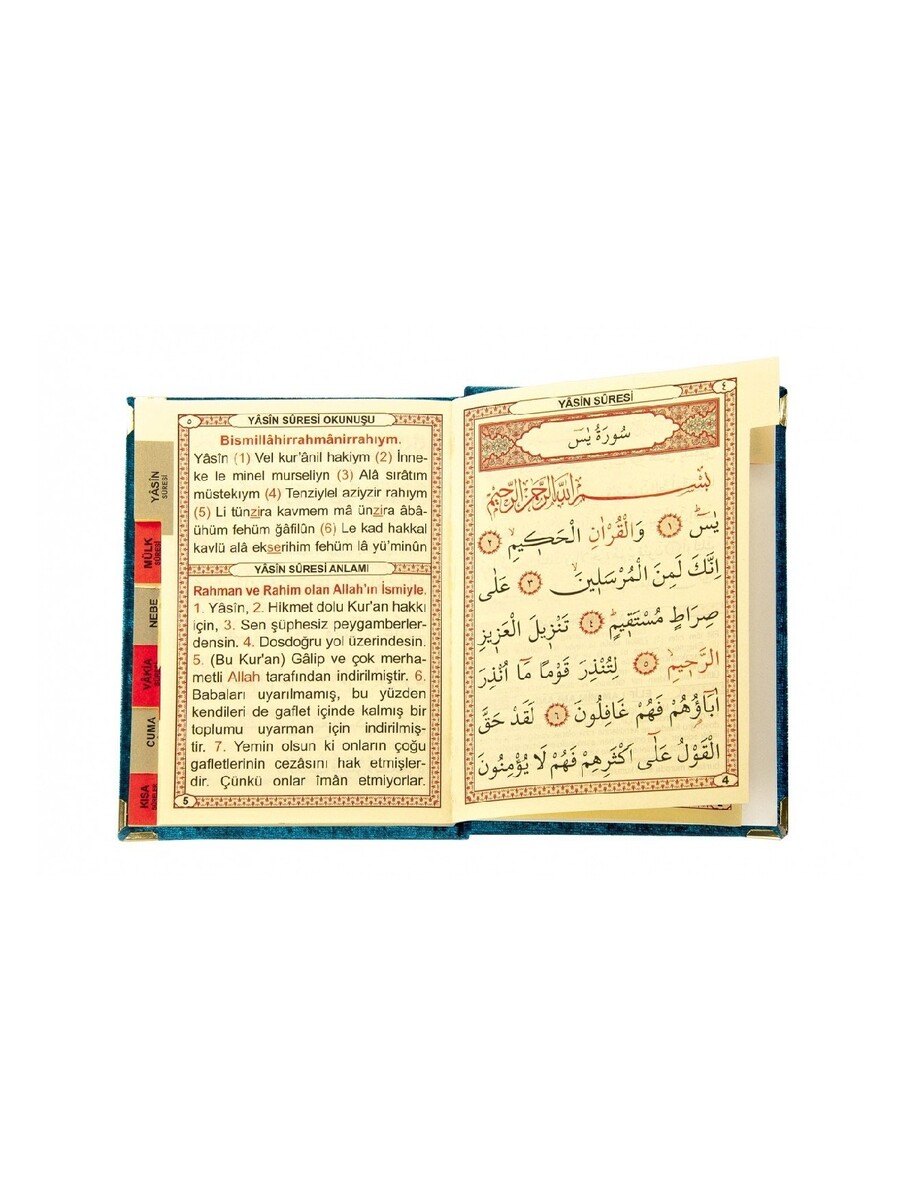 ٥
YÂSÎN SÛRESİ OKUNUŞU
Bismillâhirrahmânirrahıym.
Yâsîn (1) Vel kur'ânil hakiym (2) İnne-
ke le minel murseliyn (3) Alâ sırâtım
müstekıym (4) Tenziylel aziyzir rahıym
(5) Li tünzira kavmem mâ ünzira âbâ-
ühüm fehüm ğâfilûn (6) Le kad hakkal
kavlü alâ ekserihim fehüm lâ yü'minûn
YÂSÎN SÛRESİ ANLAMI
Rahman ve Rahim olan Allah'ın İsmiyle.
1. Yâsîn, 2. Hikmet dolu Kur'an hakkı
için, 3. Sen şüphesiz peygamberler-
densin. 4. Dosdoğru yol üzerindesin.
5. (Bu Kur'an) Gâlip ve çok merha-
metli Allah tarafından indirilmiştir. 6.
Babaları uyarılmamış, bu yüzden
kendileri de gaflet içinde kalmış bir
toplumu uyarman için indirilmiş-
tir. 7. Yemin olsun ki onların çoğu
gafletlerinin cezasını hak etmişler-
dir. Çünkü onlar îmân etmiyorlar.
5
YÂSİN
SÛRESİ
MÜLK
SÛRESİ
NEBE
VÂKIA
CUMA
KISA
YÂSİN SÛRESİ
٤
سُورَةُ يٰسٓ
بِسْمِ اللّٰهِ الرَّحْمٰنِ الرَّحِيمِ
يٰسٓ ۚ ﴿١﴾ وَالْقُرْاٰنِ الْحَكِيمِۙ ﴿٢﴾
اِنَّكَ لَمِنَ الْمُرْسَلِينَۙ ﴿٣﴾ عَلٰى
صِرَاطٍ مُسْتَقِيمٍۜ ﴿٤﴾ تَنْزِيلَ الْعَزِيزِ
الرَّحِيمِۙ ﴿٥﴾ لِتُنْذِرَ قَوْمًا مَٓا اُنْذِرَ
اٰبَٓاؤُهُمْ فَهُمْ غَافِلُونَ ﴿٦﴾ لَقَدْ حَقَّ
الْقَوْلُ عَلٰٓى اَكْثَرِهِمْ فَهُمْ لَا يُؤْمِنُونَ
4